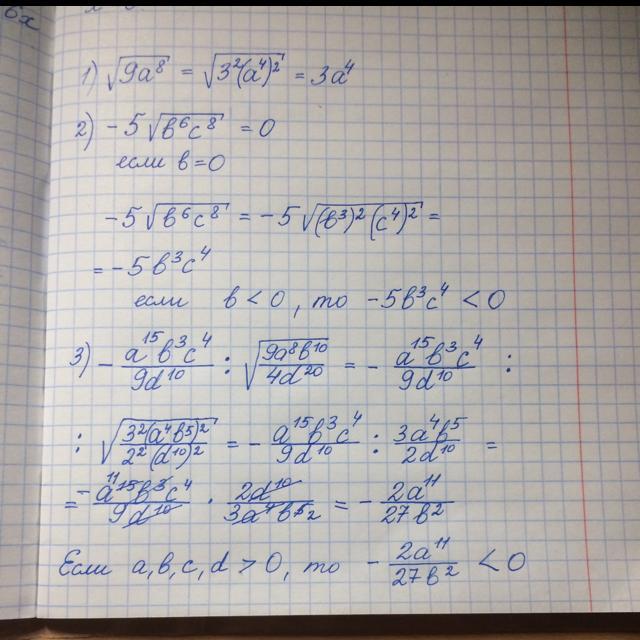 6x
1) √(9a⁸) = √(3²(a⁴)²) = 3a⁴
2) -5√(b⁶c⁸) = 0
если b=0
-5√(b⁶c⁸) = -5√((b³)²(c⁴)²) =
= -5b³c⁴
если b < 0, то -5b³c⁴ < 0
3) - a¹⁵b³c⁴/9d¹⁰ : √(9a⁸b¹⁰/4d²⁰) = - a¹⁵b³c⁴/9d¹⁰ :
: √(3²(a⁴b⁵)²/2²(d¹⁰)²) = - a¹⁵b³c⁴/9d¹⁰ : 3a⁴b⁵/2d¹⁰ =
= -a¹⁵b³c⁴/9d¹⁰ · 2d¹⁰/3a⁴b⁵ = - 2a¹¹/27b²
Если a,b,c,d > 0, то - 2a¹¹/27b² < 0